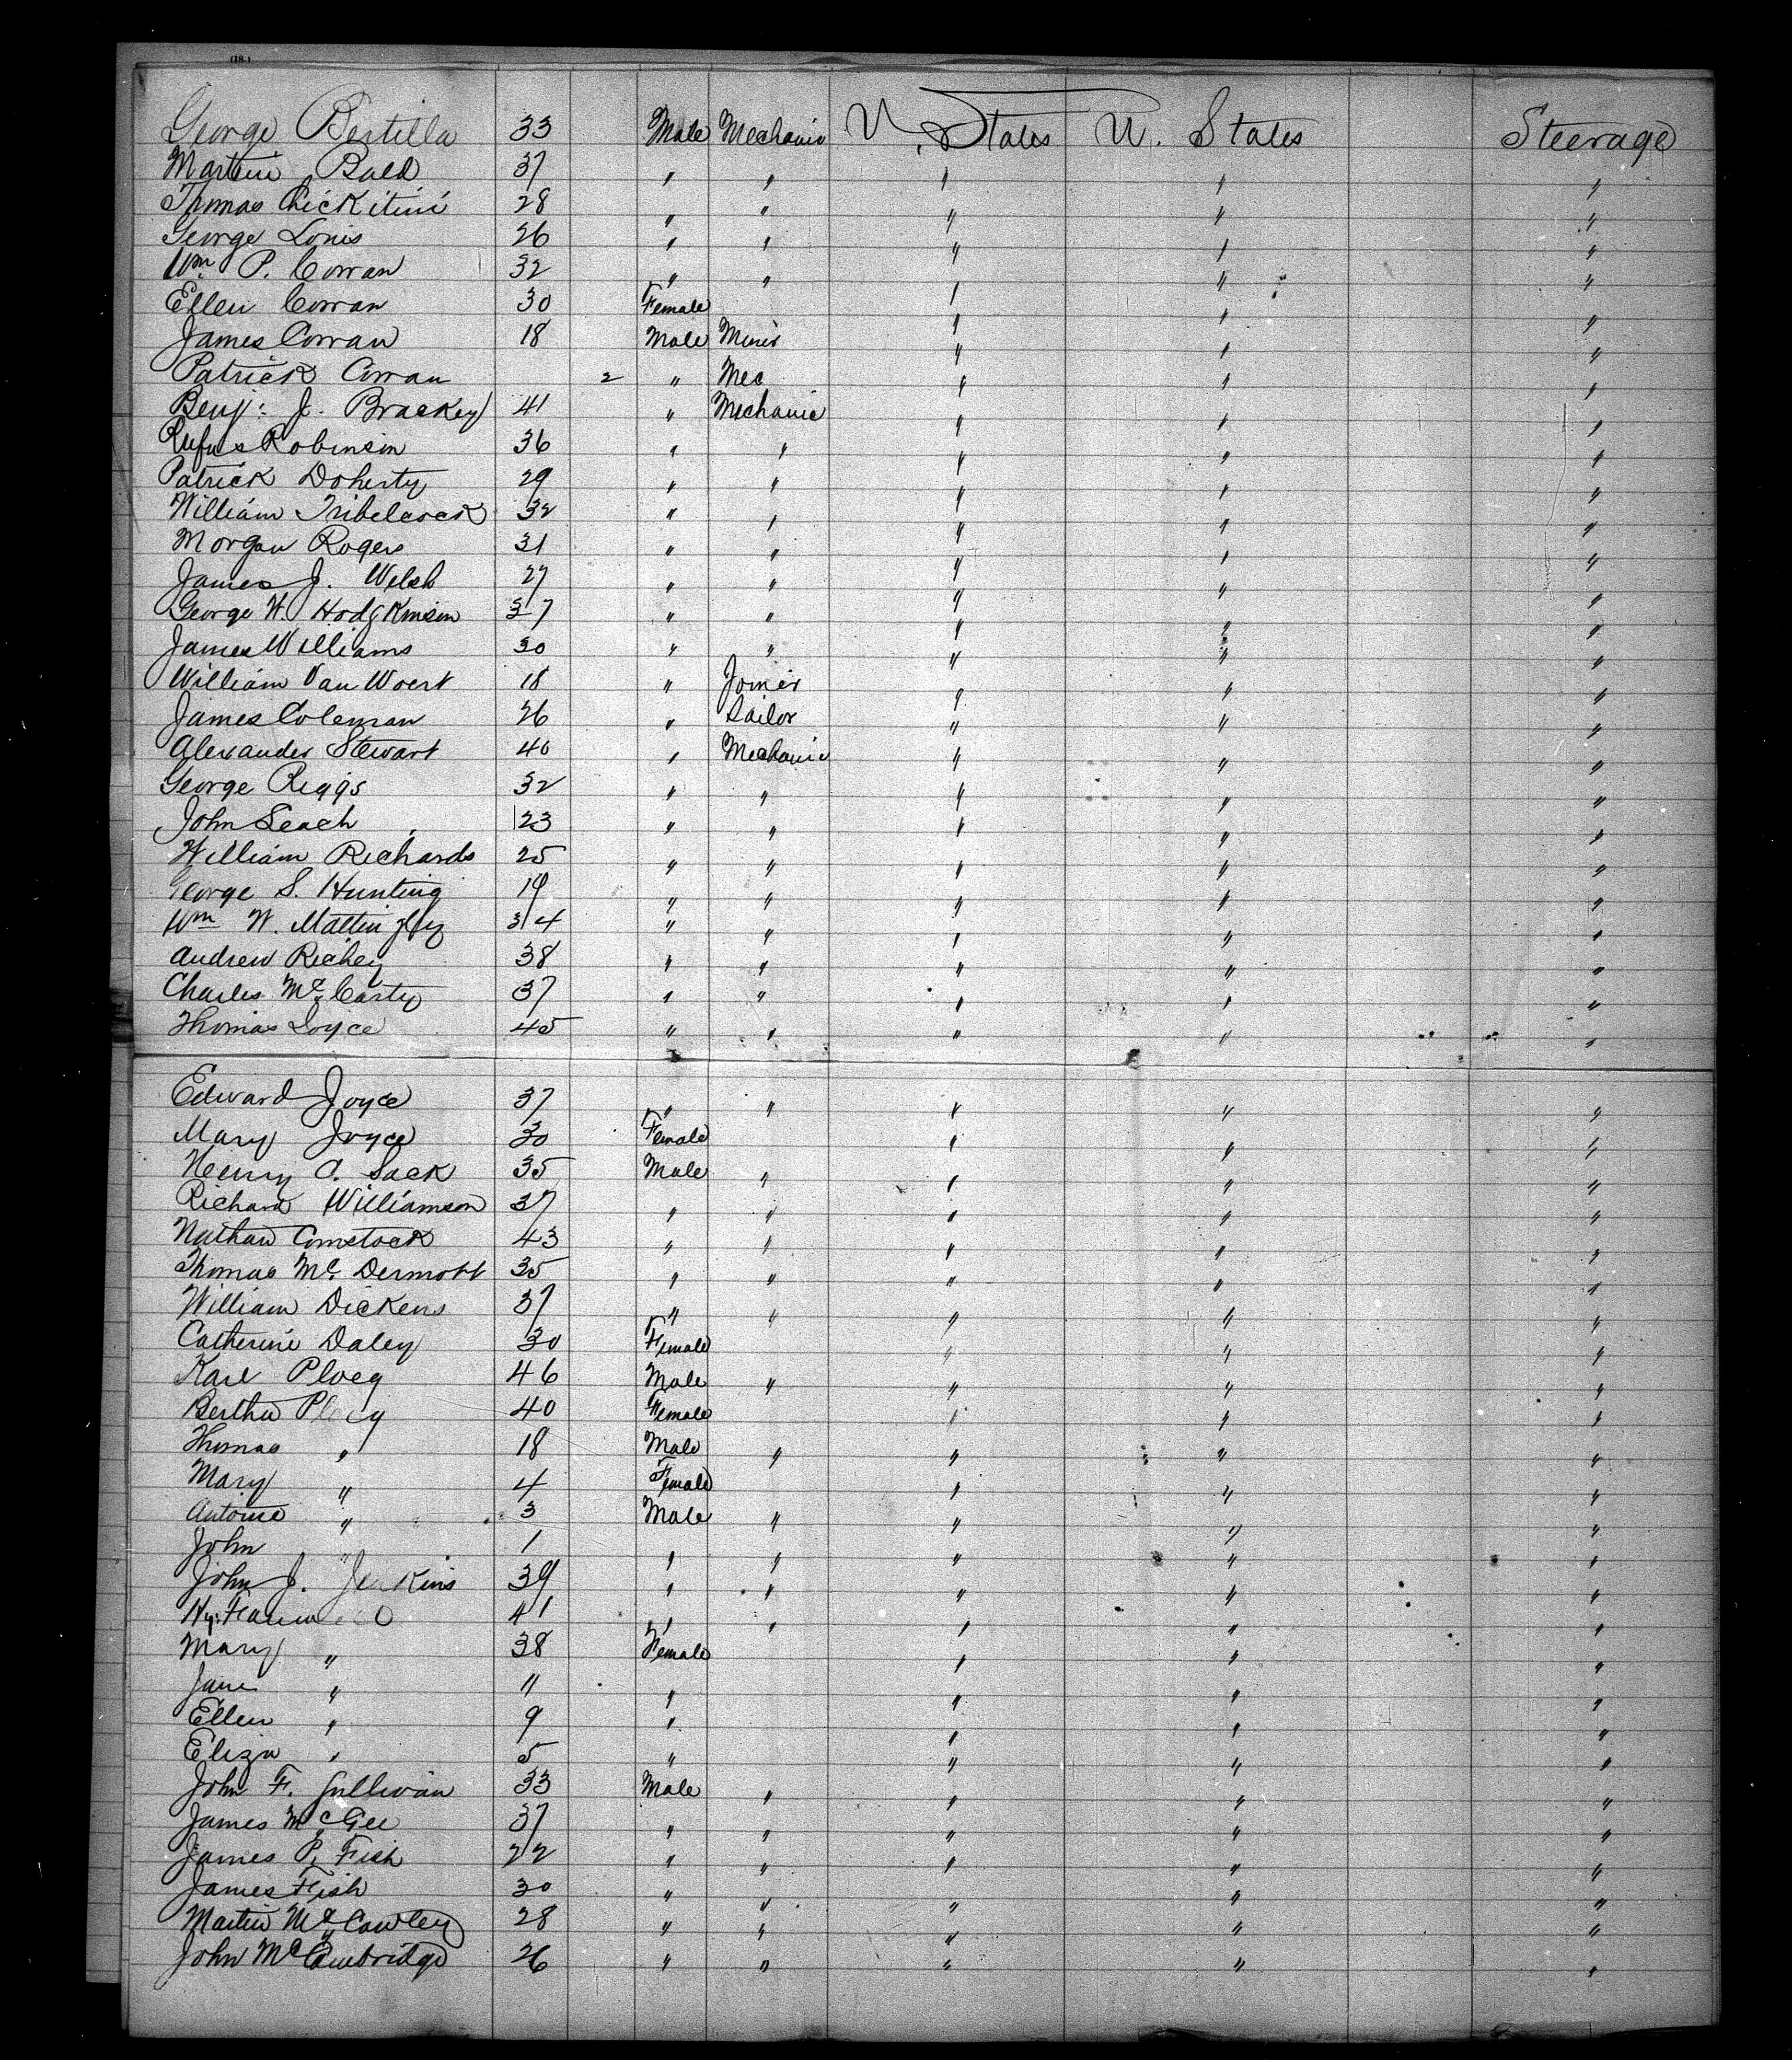 (18)
George Bertilla 33 Male Mechanic U. States U. States Steerage
Martin Bald 37 " " " " "
Thomas Chickitini 28 " " " " "
George Louis 26 " " " " "
Wm P. Corran 32 " " " " "
Ellen Corran 30 Female " " "
James Corran 18 Male Miner " " "
Patrick Corran 2 " Mec " " "
Benj: J. Brackey 41 " Mechanic " " "
Rufus Robinson 36 " " " " "
Patrick Doherty 29 " " " " "
William Tribelcock 32 " " " " "
Morgan Rogers 31 " " " " "
James J. Welsh 27 " " " " "
George W. Hodgkinson 37 " " " " "
James Williams 30 " " " " "
William Van Woert 18 " Joiner " " "
James Coleman 26 " Sailor " " "
Alexander Stewart 40 " Mechanic " " "
George Riggs 32 " " " " "
John Leach 23 " " " " "
William Richards 25 " " " " "
George S. Hunting 19 " " " " "
Wm W. Mattingly 34 " " " " "
Andrew Richey 38 " " " " "
Charles McCarty 37 " " " " "
Thomas Joyce 45 " " " " "
Edward Joyce 37 " " " " "
Mary Joyce 30 Female " " "
Henry A. Sack 35 Male " " " "
Richard Williamson 37 " " " " "
Nathan Comstock 43 " " " " "
Thomas McDermott 35 " " " " "
William Dickens 37 " " " " "
Catherine Daley 30 Female " " "
Karl Ploeg 46 Male " " " "
Bertha Ploeg 40 Female " " "
Thomas " 18 Male " " " "
Mary " 4 Female " " "
Antoine " 3 Male " " " "
John " 1 " " " " "
John J. Jenkins 39 " " " " "
Hy: 41 " " " " "
Mary " 38 Female " " "
Jane " 11 " " " "
Ellen " 9 " " " "
Eliza " 5 " " " "
John F. Sullivan 33 Male " " " "
James McGee 37 " " " " "
James P. Fish 22 " " " " "
James Fish 30 " " " " "
Martin McCawley 28 " " " " "
John McCambridge 26 " " " " "